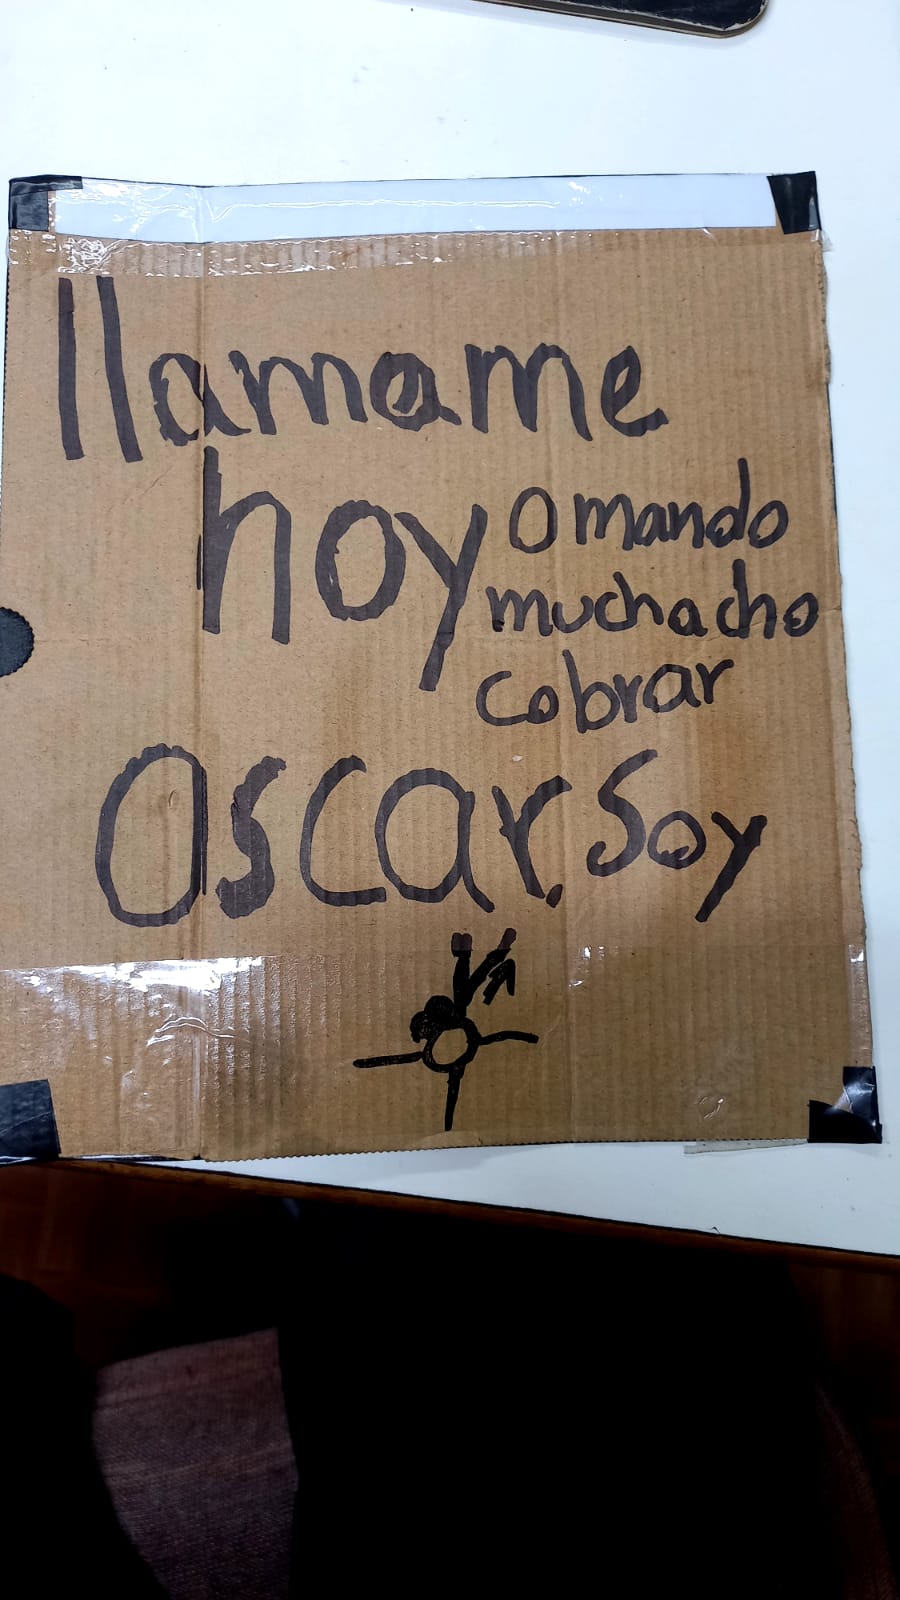 llamame
hoy o mando
muchacho
cobrar
Oscar. Soy